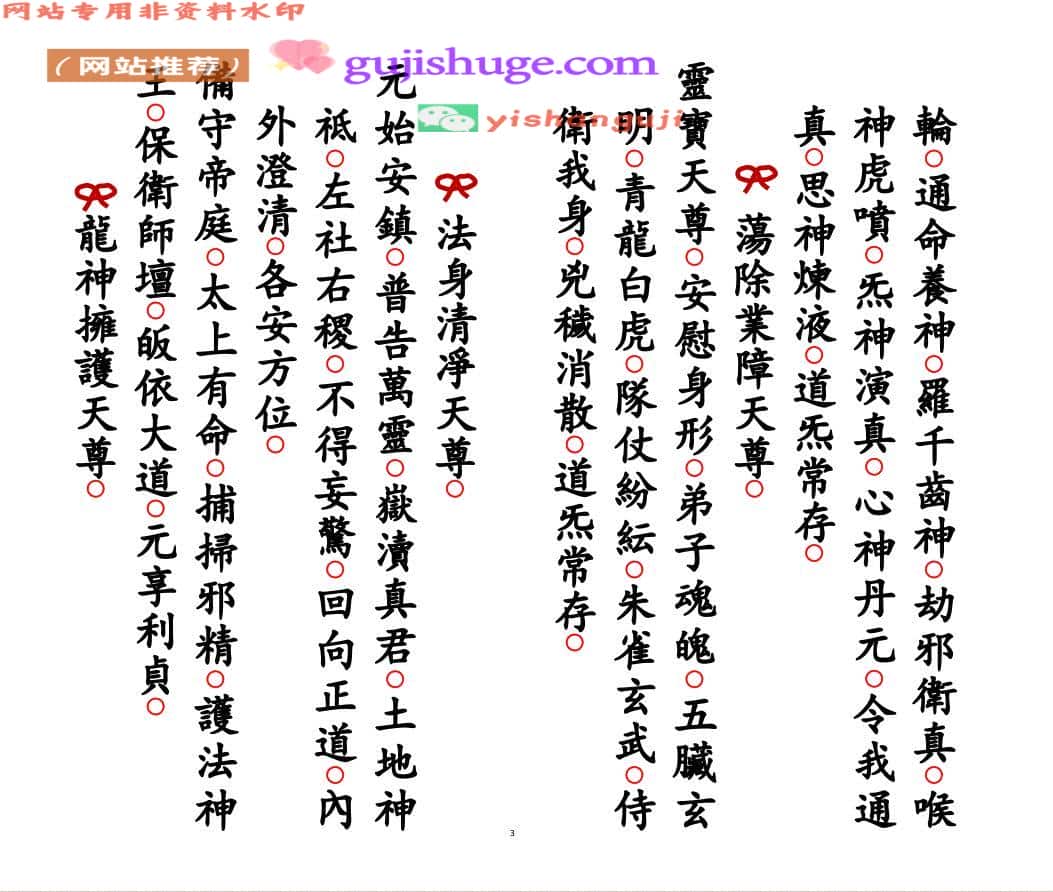 网站专用非资料水印
（网站推荐）
gujishuge.com
yishanguji
輪○通命養神○羅千齒神○劫邪衛真○喉
神虎噴○炁神演真○心神丹元○令我通
真○思神煉液○道炁常存○
蕩除業障天尊○
靈寶天尊○安慰身形○弟子魂魄○五臟玄
明○青龍白虎○隊仗紛紜○朱雀玄武○侍
衛我身○兇穢消散○道炁常存○
法身清凈天尊○
元始安鎮○普告萬靈○嶽瀆真君○土地神
祗○左社右稷○不得妄驚○回向正道○內
外澄清○各安方位○
備守帝庭○太上有命○捕掃邪精○護法神
王○保衛師壇○皈依大道○元享利貞○
龍神擁護天尊○
3